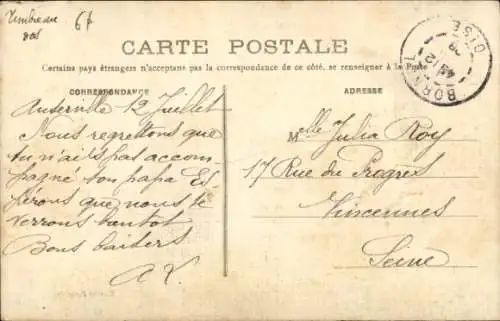 Timbre au
dos
6f
CARTE POSTALE
Certains pays étrangers n'acceptent pas la correspondance de ce côté, se renseigner à la Poste
CORRESPONDANCE
Anserville 12 Juillet
Nous regrettons que
tu n'ais pas accom-
pagné ton papa Es-
pérons que nous te
verrons bientot
Bons baisers
A V.
ADRESSE
Melle Julia Roy
17 Rue du Progres
Vincennes
Seine
BORNEL
OISE